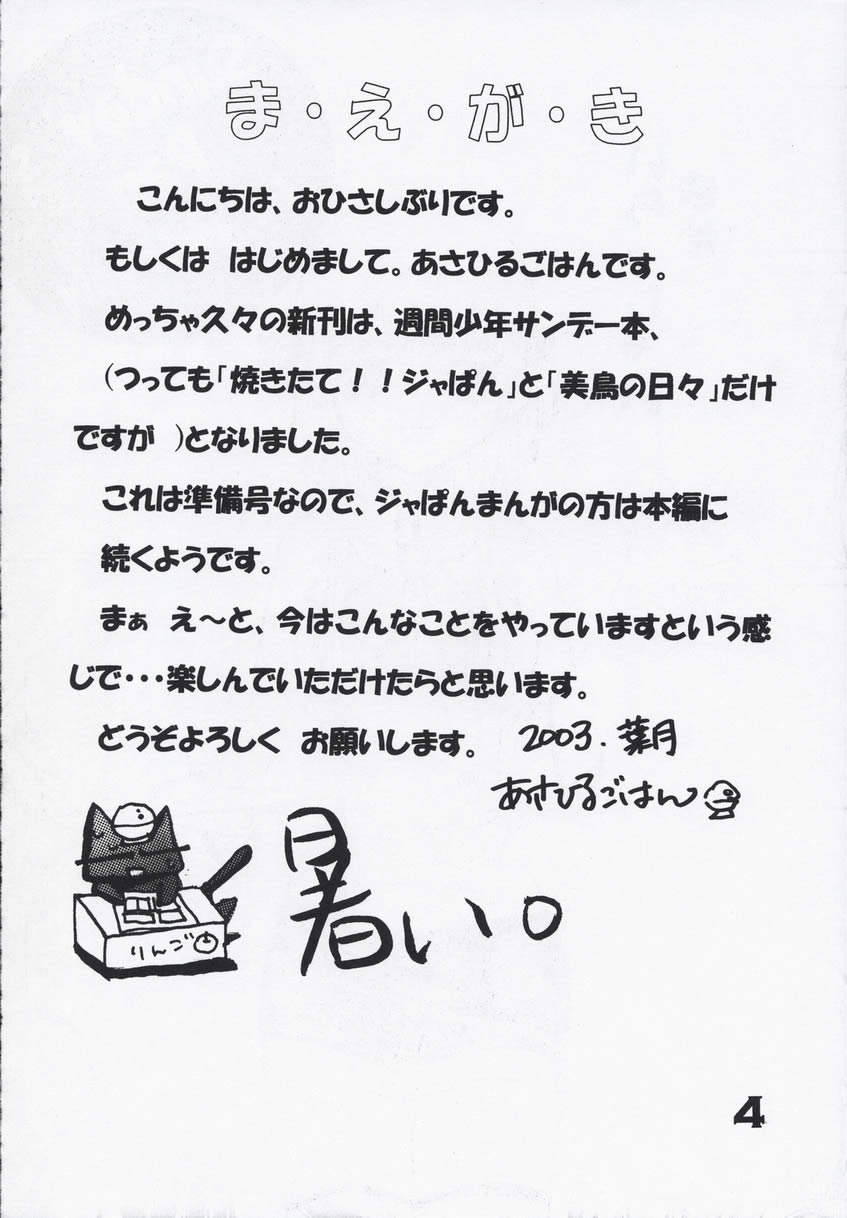 ま・え・が・き
こんにちは、おひさしぶりです。
もしくは　はじめまして。あさひるごはんです。
めっちゃ久々の新刊は、週間少年サンデー本、
(つっても「焼きたて！！ジャぱん」と「美鳥の日々」だけ
ですが　)となりました。
これは準備号なので、ジャぱんまんがの方は本編に
続くようです。
まぁ　え～と、今はこんなことをやっていますという感
じで・・・楽しんでいただけたらと思います。
どうぞよろしく　お願いします。　2003.葉月
あさひるごはん
暑い。
りんご
4